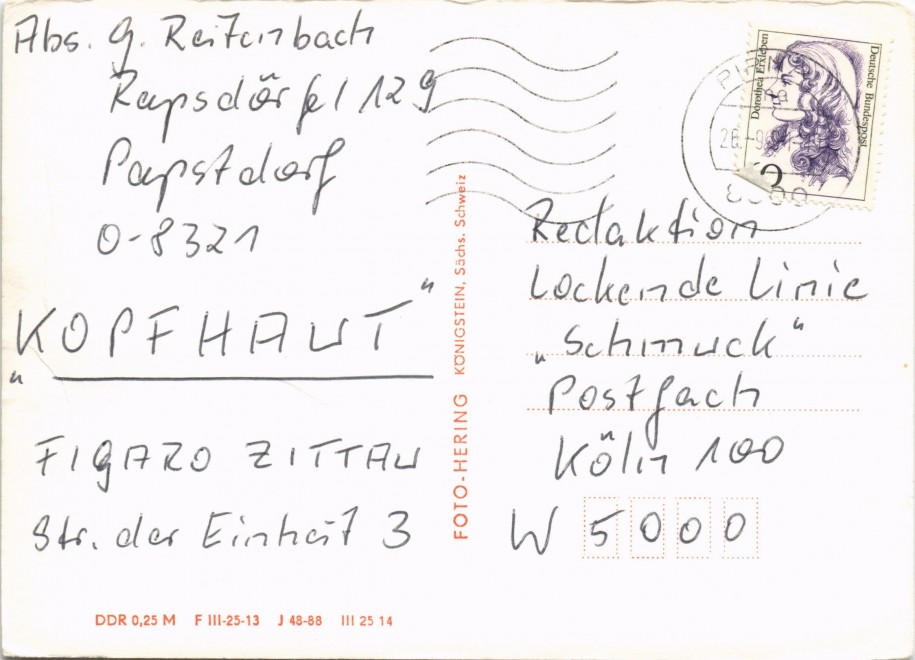 Abs. G. Reifenbach
Rapsdörfel 129
Papstdorf
O-8321
„KOPFHAUT"
FIGARO ZITTAU
Str. der Einheit 3
DDR 0,25 M F III-25-13 J 48-88 III 25 14
FOTO-HERING KÖNIGSTEIN, Sächs. Schweiz
Dorothea Erxleben
Deutsche Bundespost
Redaktion
Lockende Linie
„Schmuck"
Postfach
Köln 100
W 5000